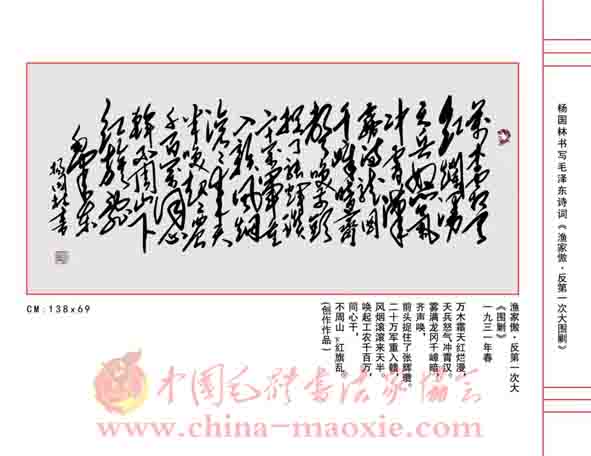 杨国林书写毛泽东诗词《渔家傲·反第一次大围剿》
萬木霜天
紅爛漫
天兵怒氣
冲霄漢
霧滿龍岡
千嶂暗齊
聲唤前頭
捉了張輝瓚
二十万軍重
入赣風烟
滚滚来天
半唤起工農
千百萬同心
幹不周山下
紅旗亂
毛泽东
杨国林書
CM:138x69
渔家傲·反第一次大
《围剿》
一九三一年春
万木霜天红烂漫,
天兵怒气冲霄汉。
雾满龙冈千嶂暗,
齐声唤,
前头捉住了张辉瓒。
二十万军重入赣,
风烟滚滚来天半。
唤起工农千百万,
同心干,
不周山下红旗乱。
(创作作品)
中国毛体书法家协会
www.china-maoxie.com